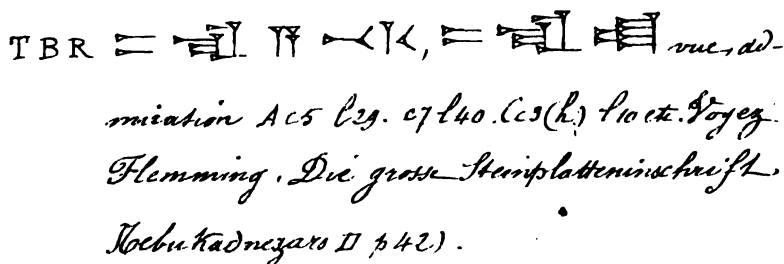 TBR 𒋰 𒊏 𒀀 𒋾, 𒋰 𒊏 vue, ad-
miration A c5 l29. c7 l40. C c3(h.) l10 etc. Voyez
Flemming. Die grosse Steinplatteninschrift,
Nebukadnezars II p42).